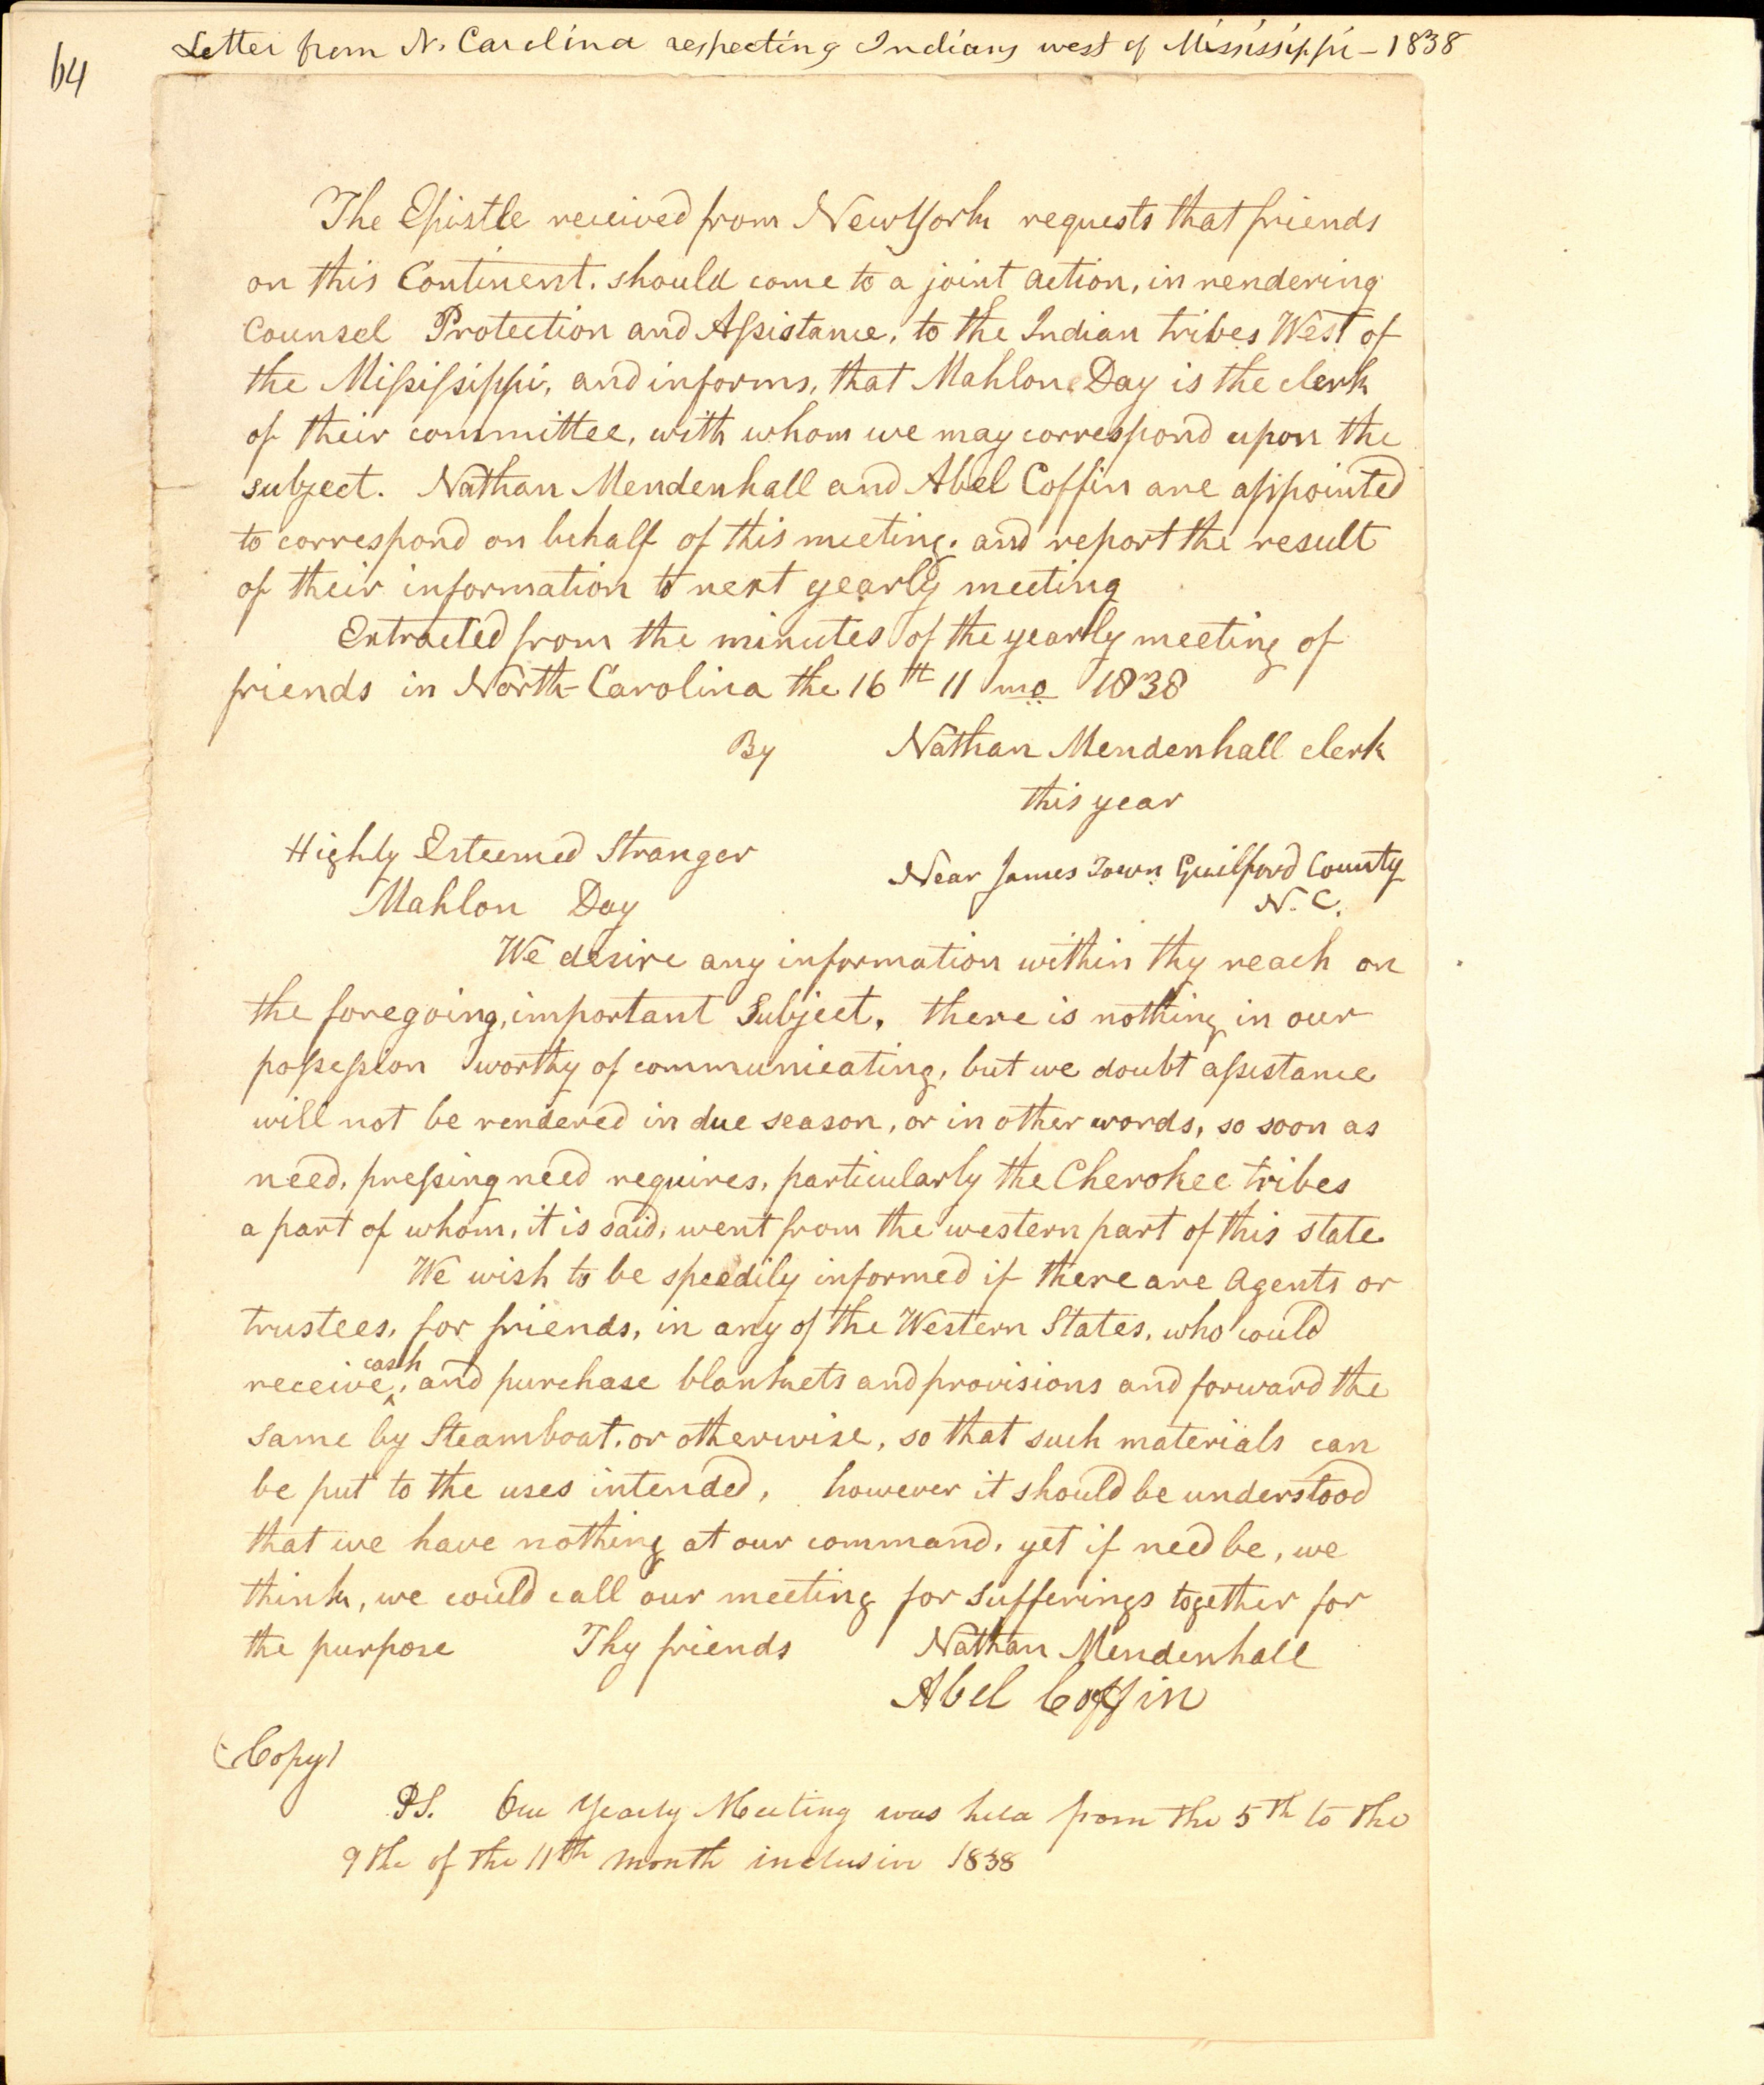 64
Letter from N. Carolina respecting Indians west of Mississippi - 1838
The Epistle received from NewYork requests that friends
on this Continent. should come to a joint action, in rendering
Counsel Protection and Assistance, to the Indian tribes West of
the Mississippi, and informs, that Mahlon Day is the clerk
of their committee, with whom we may correspond upon the
subject. Nathan Mendenhall and Abel Coffin are appointed
to correspond on behalf of this meeting. and report the result
of their information to next yearly meeting
Extracted from the minutes of the yearly meeting of
friends in North-Carolina the 16th 11 mo 1838
By Nathan Mendenhall clerk
this year
Highly Esteemed Stranger
Near James Town Guilford County
N. C.
Mahlon Day
We desire any information within thy reach on
the foregoing, important Subject, there is nothing in our
possession worthy of communicating, but we doubt assistance
will not be rendered in due season, or in other words, so soon as
need, pressing need requires, particularly the Cherokee tribes
a part of whom, it is said, went from the western part of this state.
We wish to be speedily informed if there are Agents or
trustees, for friends, in any of the Western States, who could
receive, cash and purchase blankets and provisions and forward the
same by Steamboat, or otherwise, so that such materials can
be put to the uses intended, however it should be understood
that we have nothing at our command, yet if need be, we
think, we could call our meeting for sufferings together for
the purpose Thy friends Nathan Mendenhall
Abel Coffin
(Copy)
PS. Our Yearly Meeting was held from the 5th to the
9the of the 11th month inclusive 1838